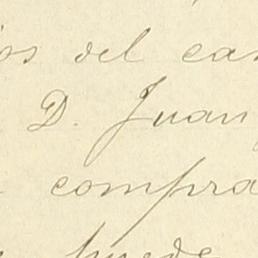 os del ca
D. Juan
compra
puede